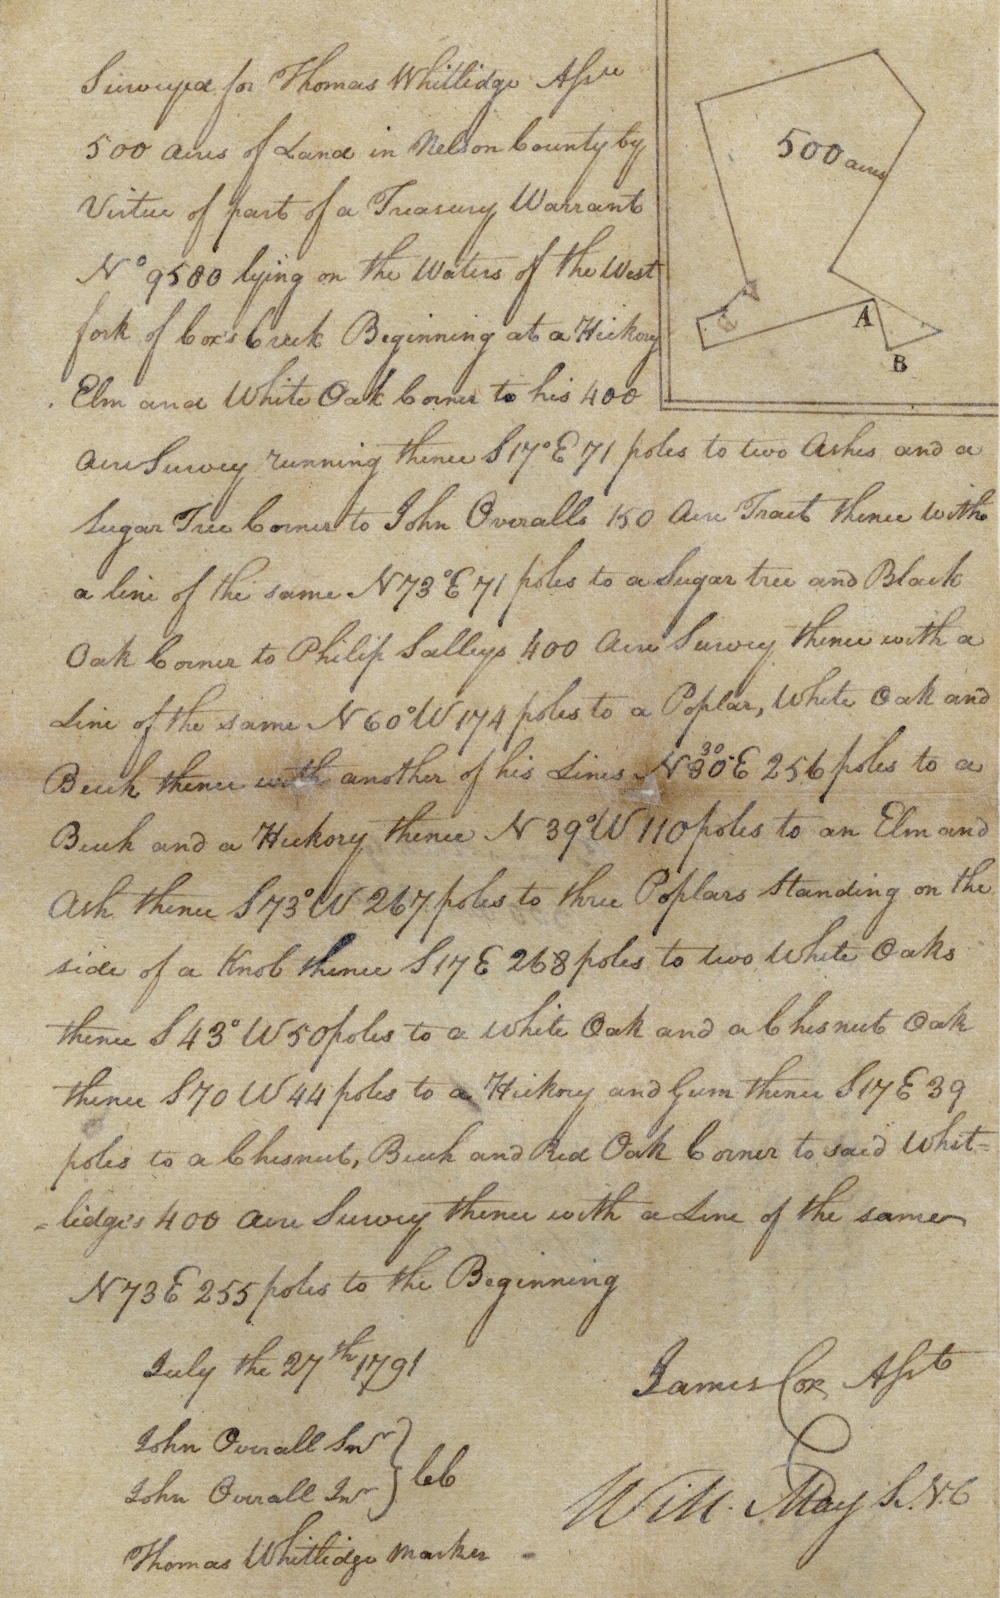 Surveyed for Thomas Whitlidge Assee
500 acres of Land in Nelson County by
Virtue of part of a Treasury Warrant
No 9580 lying on the Waters of the West
fork of Cox's Creek Beginning at a Hickory
Elm and White Oak Corner to his 400
acre Survey running thence S17°E 71 poles to two Ashes and a
Sugar Tree Corner to John Overalls 150 Acre Tract thence with
a line of the same N73°E 71 poles to a Sugar tree and Black
Oak Corner to Philip Salleys 400 Acre Survey thence with a
Line of the same N60°W 174 poles to a Poplar, White Oak and
Beech thence with another of his Lines N30°E 256 poles to a
Beech and a Hickory thence N39°W 110 poles to an Elm and
Ash thence S73°W 267 poles to three Poplars Standing on the
side of a Knob thence S17E 268 poles to two White Oaks
thence S43°W 50 poles to a white Oak and a Chesnut Oak
thence S70W 44 poles to a Hickory and Gum thence S17E 39
poles to a Chesnut, Beech and Red Oak Corner to said Whit=
=lidge's 400 Acre Survey thence with a Line of the same
N73E 255 poles to the Beginning
July the 27th 1791
John Overall Snr
John Overall Jnr } CC
Thomas Whitlidge Marker
James Cox Asst
Will. May S.N.C
500 acres
A
B